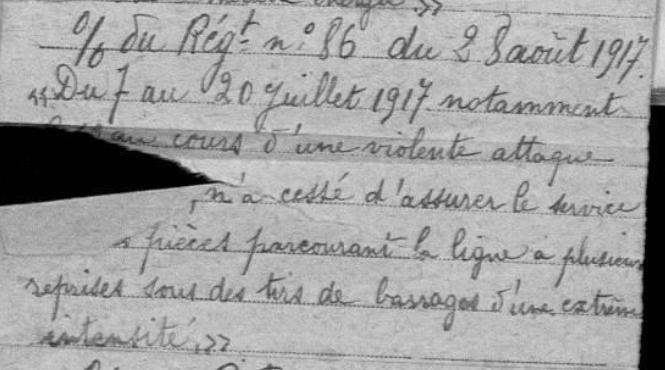 énergie. »
% du Régt n° 86 du 28 août 1917.
"Du 7 au 20 Juillet 1917 notamment
au cours d'une violente attaque
, n'a cessé d'assurer le service
s pièces parcourant la ligne à plusieurs
reprises sous des tirs de barrages d'une extrême
intensité, »